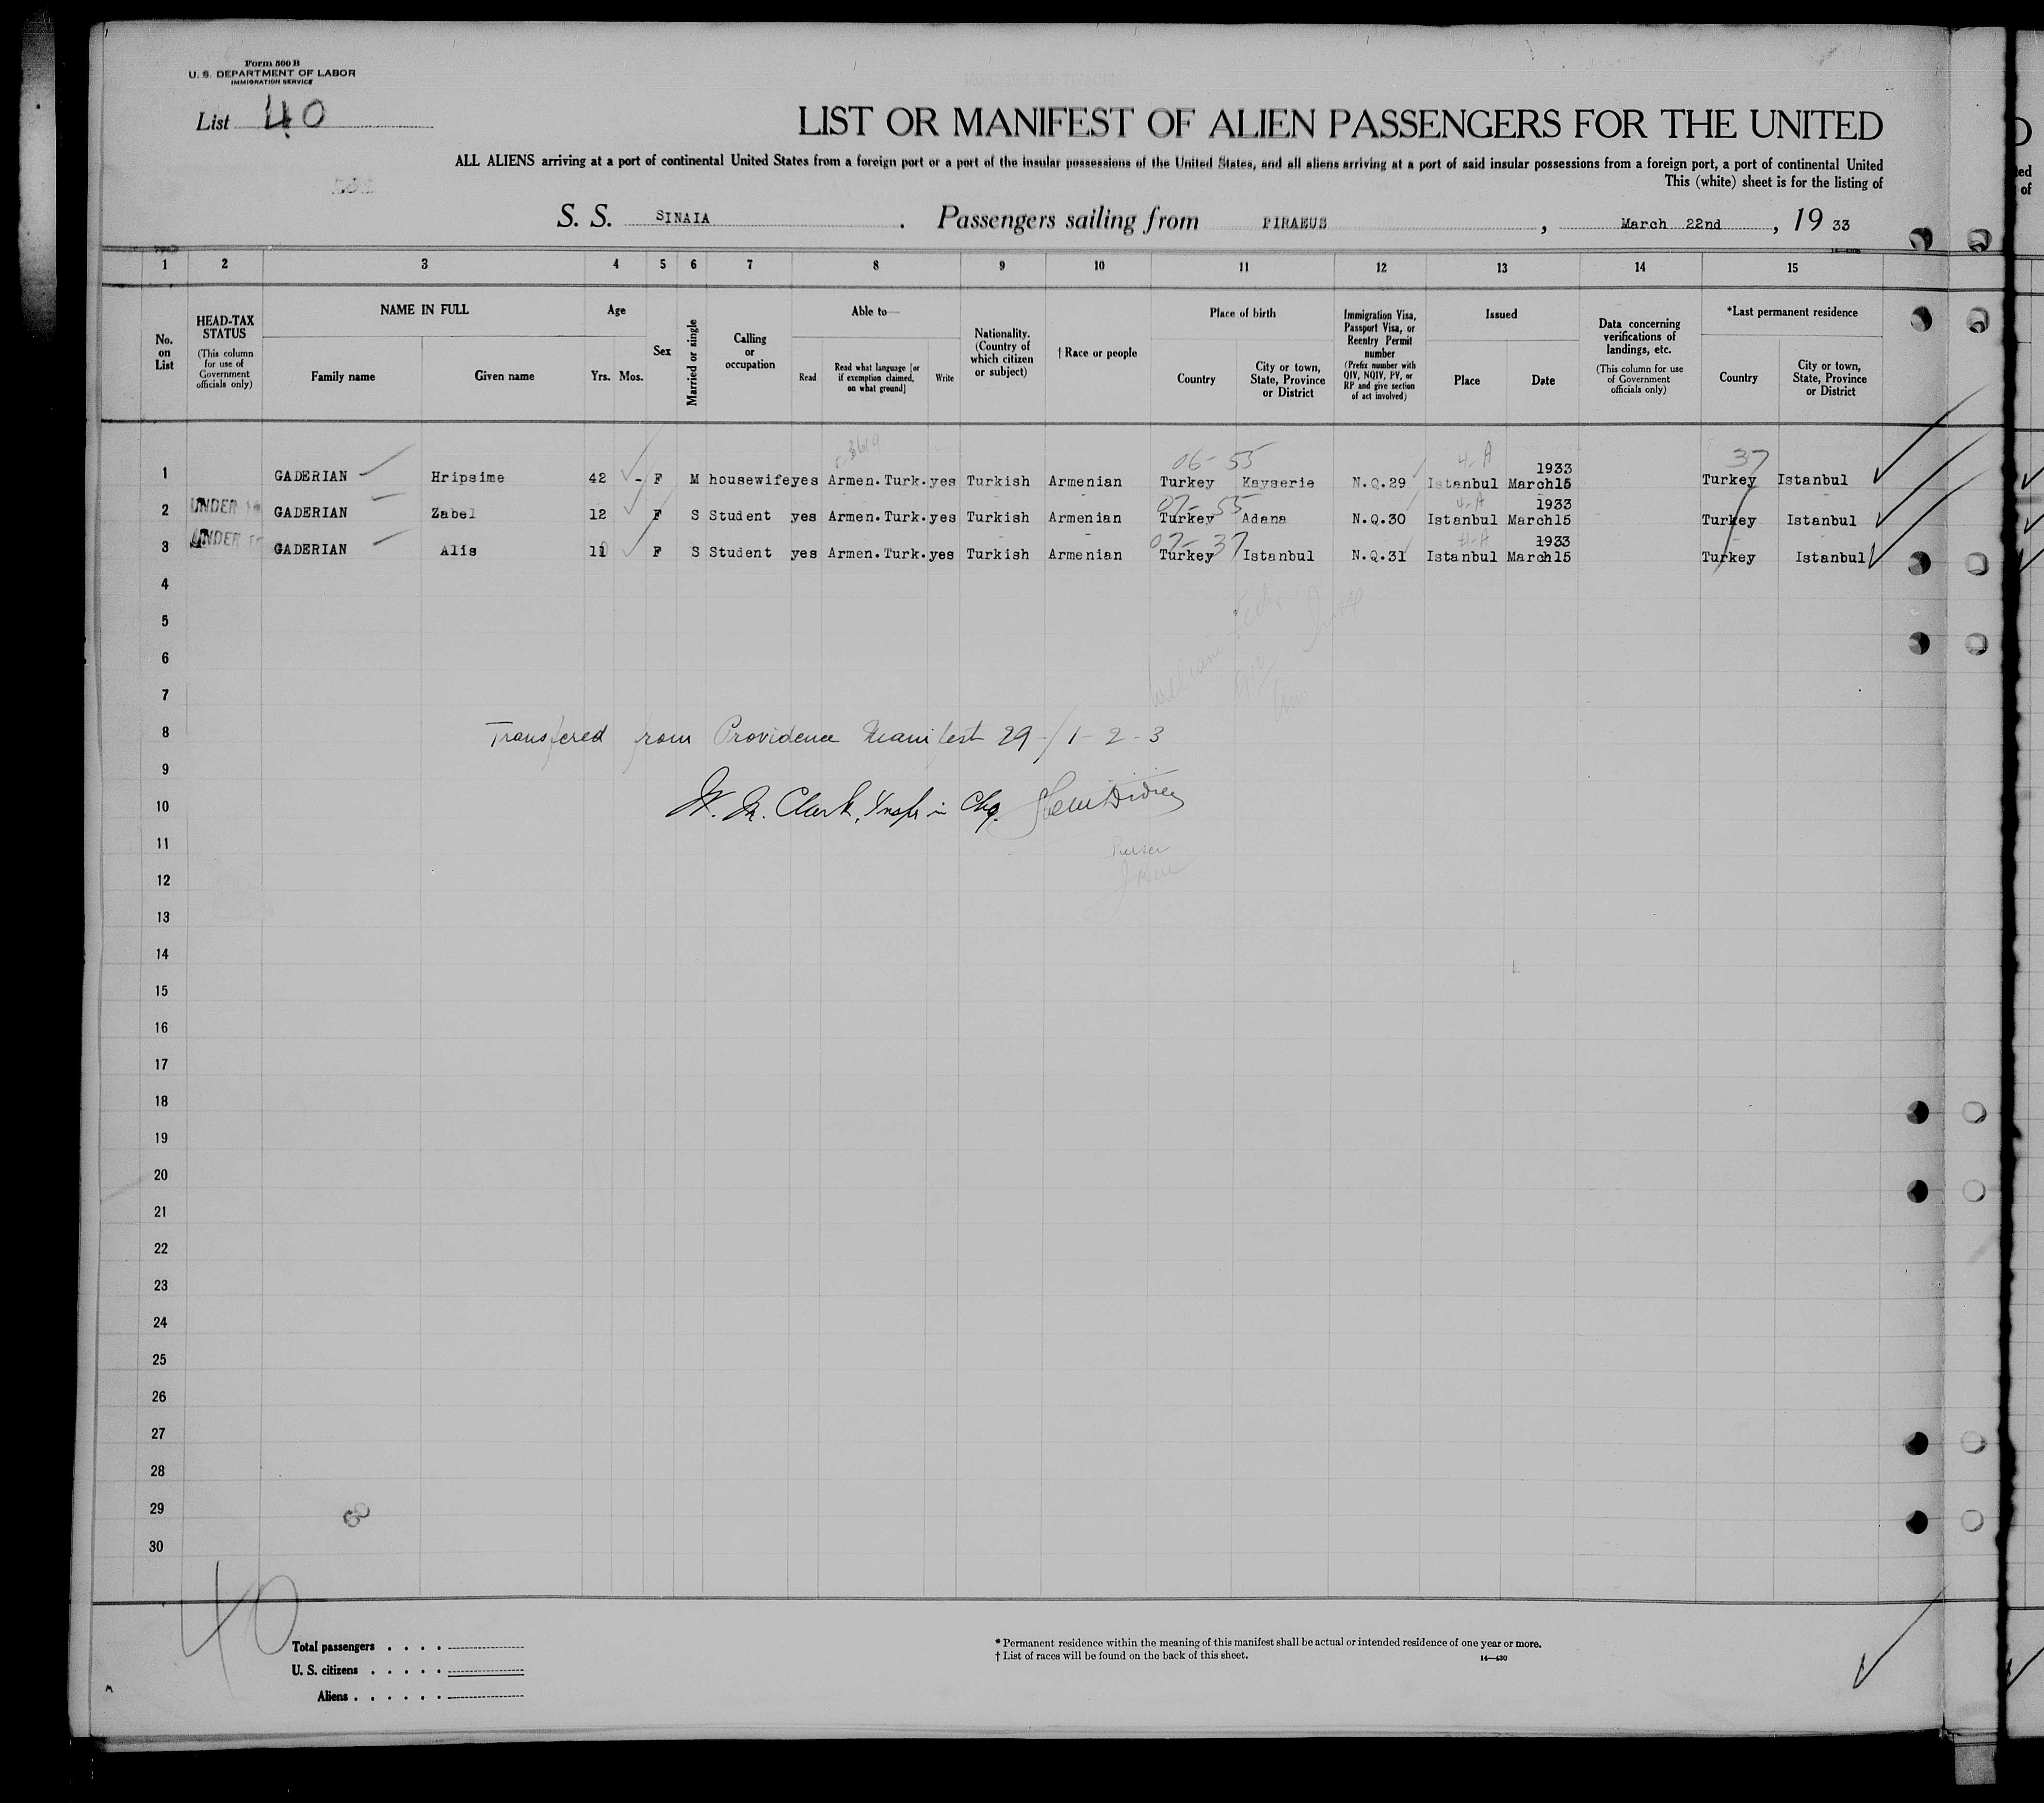 Form 500 B
U. S. DEPARTMENT OF LABOR
IMMIGRATION SERVICE
List 40
LIST OR MANIFEST OF ALIEN PASSENGERS FOR THE UNITED
ALL ALIENS arriving at a port of continental United States from a foreign port or a port of the insular possessions of the United States, and all aliens arriving at a port of said insular possessions from a foreign port, a port of continental United
This (white) sheet is for the listing of
S. S. SINAIA . Passengers sailing from PIRAEUS , March 22nd , 19 33
1 2 3 4 5 6 7 8 9 10 11 12 13 14 15
No. on List
HEAD-TAX STATUS (This column for use of Government officials only)
NAME IN FULL
Family name Given name
Age
Yrs. Mos.
Sex
Married or single
Calling or occupation
Able to—
Read Read what language [or if exemption claimed, on what ground] Write
Nationality. (Country of which citizen or subject)
† Race or people
Place of birth
Country City or town, State, Province or District
Immigration Visa, Passport Visa, or Reentry Permit number (Prefix number with QIV, NQIV, PV, or RP and give section of act involved)
Issued
Place Date
Data concerning verifications of landings, etc. (This column for use of Government officials only)
*Last permanent residence
Country City or town, State, Province or District
06-55 4-A 37
1 GADERIAN Hripsime 42 - F M housewife yes Armen.Turk. yes Turkish Armenian Turkey Kayserie N.Q.29 Istanbul March15 1933 Turkey Istanbul
07-55 4-A
2 UNDER GADERIAN Zabel 12 F S Student yes Armen.Turk. yes Turkish Armenian Turkey Adana N.Q.30 Istanbul March15 1933 Turkey Istanbul
07-37 4-A
3 UNDER GADERIAN Alis F S Student yes Armen.Turk. yes Turkish Armenian Turkey Istanbul N.Q.31 Istanbul March15 1933 Turkey Istanbul
4
5
6
7
8 Transfered from Providence Manifest 29-/1-2-3
9
10 Clark, Insp. in Chg.
11 Purser
12
13
14
15
16
17
18
19
20
21
22
23
24
25
26
27
28
29
30
40
Total passengers . . . .
U. S. citizens . . . . .
Aliens . . . . . .
* Permanent residence within the meaning of this manifest shall be actual or intended residence of one year or more.
† List of races will be found on the back of this sheet. 14—430